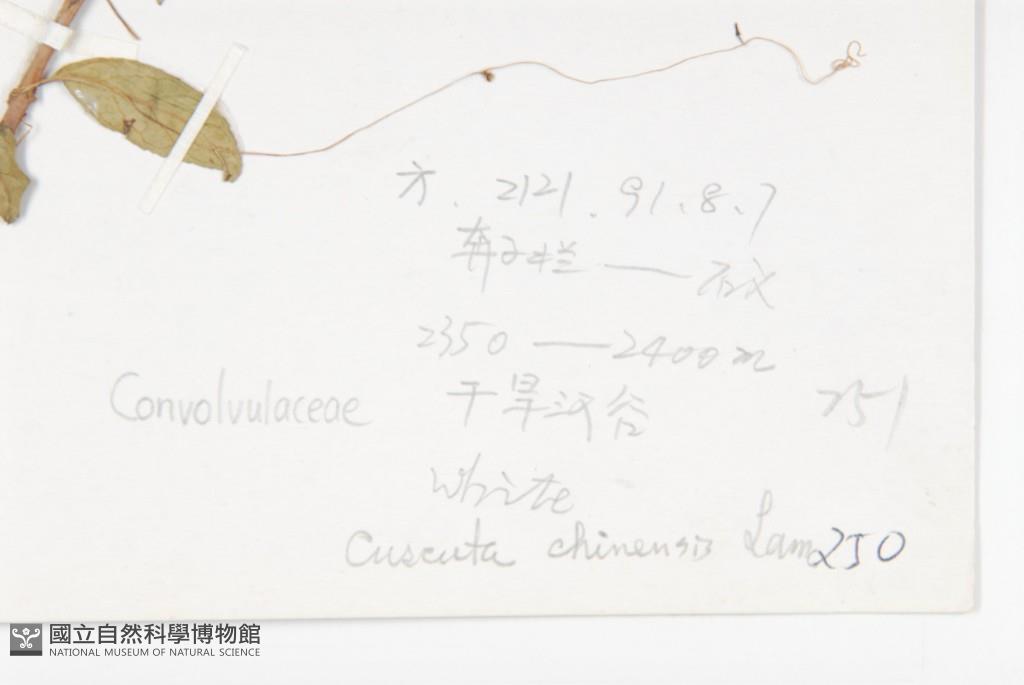 方. 2121. 91.8.7
奔子栏——
2350——2400m
干旱河谷
251
Convolvulaceae
White
Cuscuta chinensis Lam
250
國立自然科學博物館
NATIONAL MUSEUM OF NATURAL SCIENCE